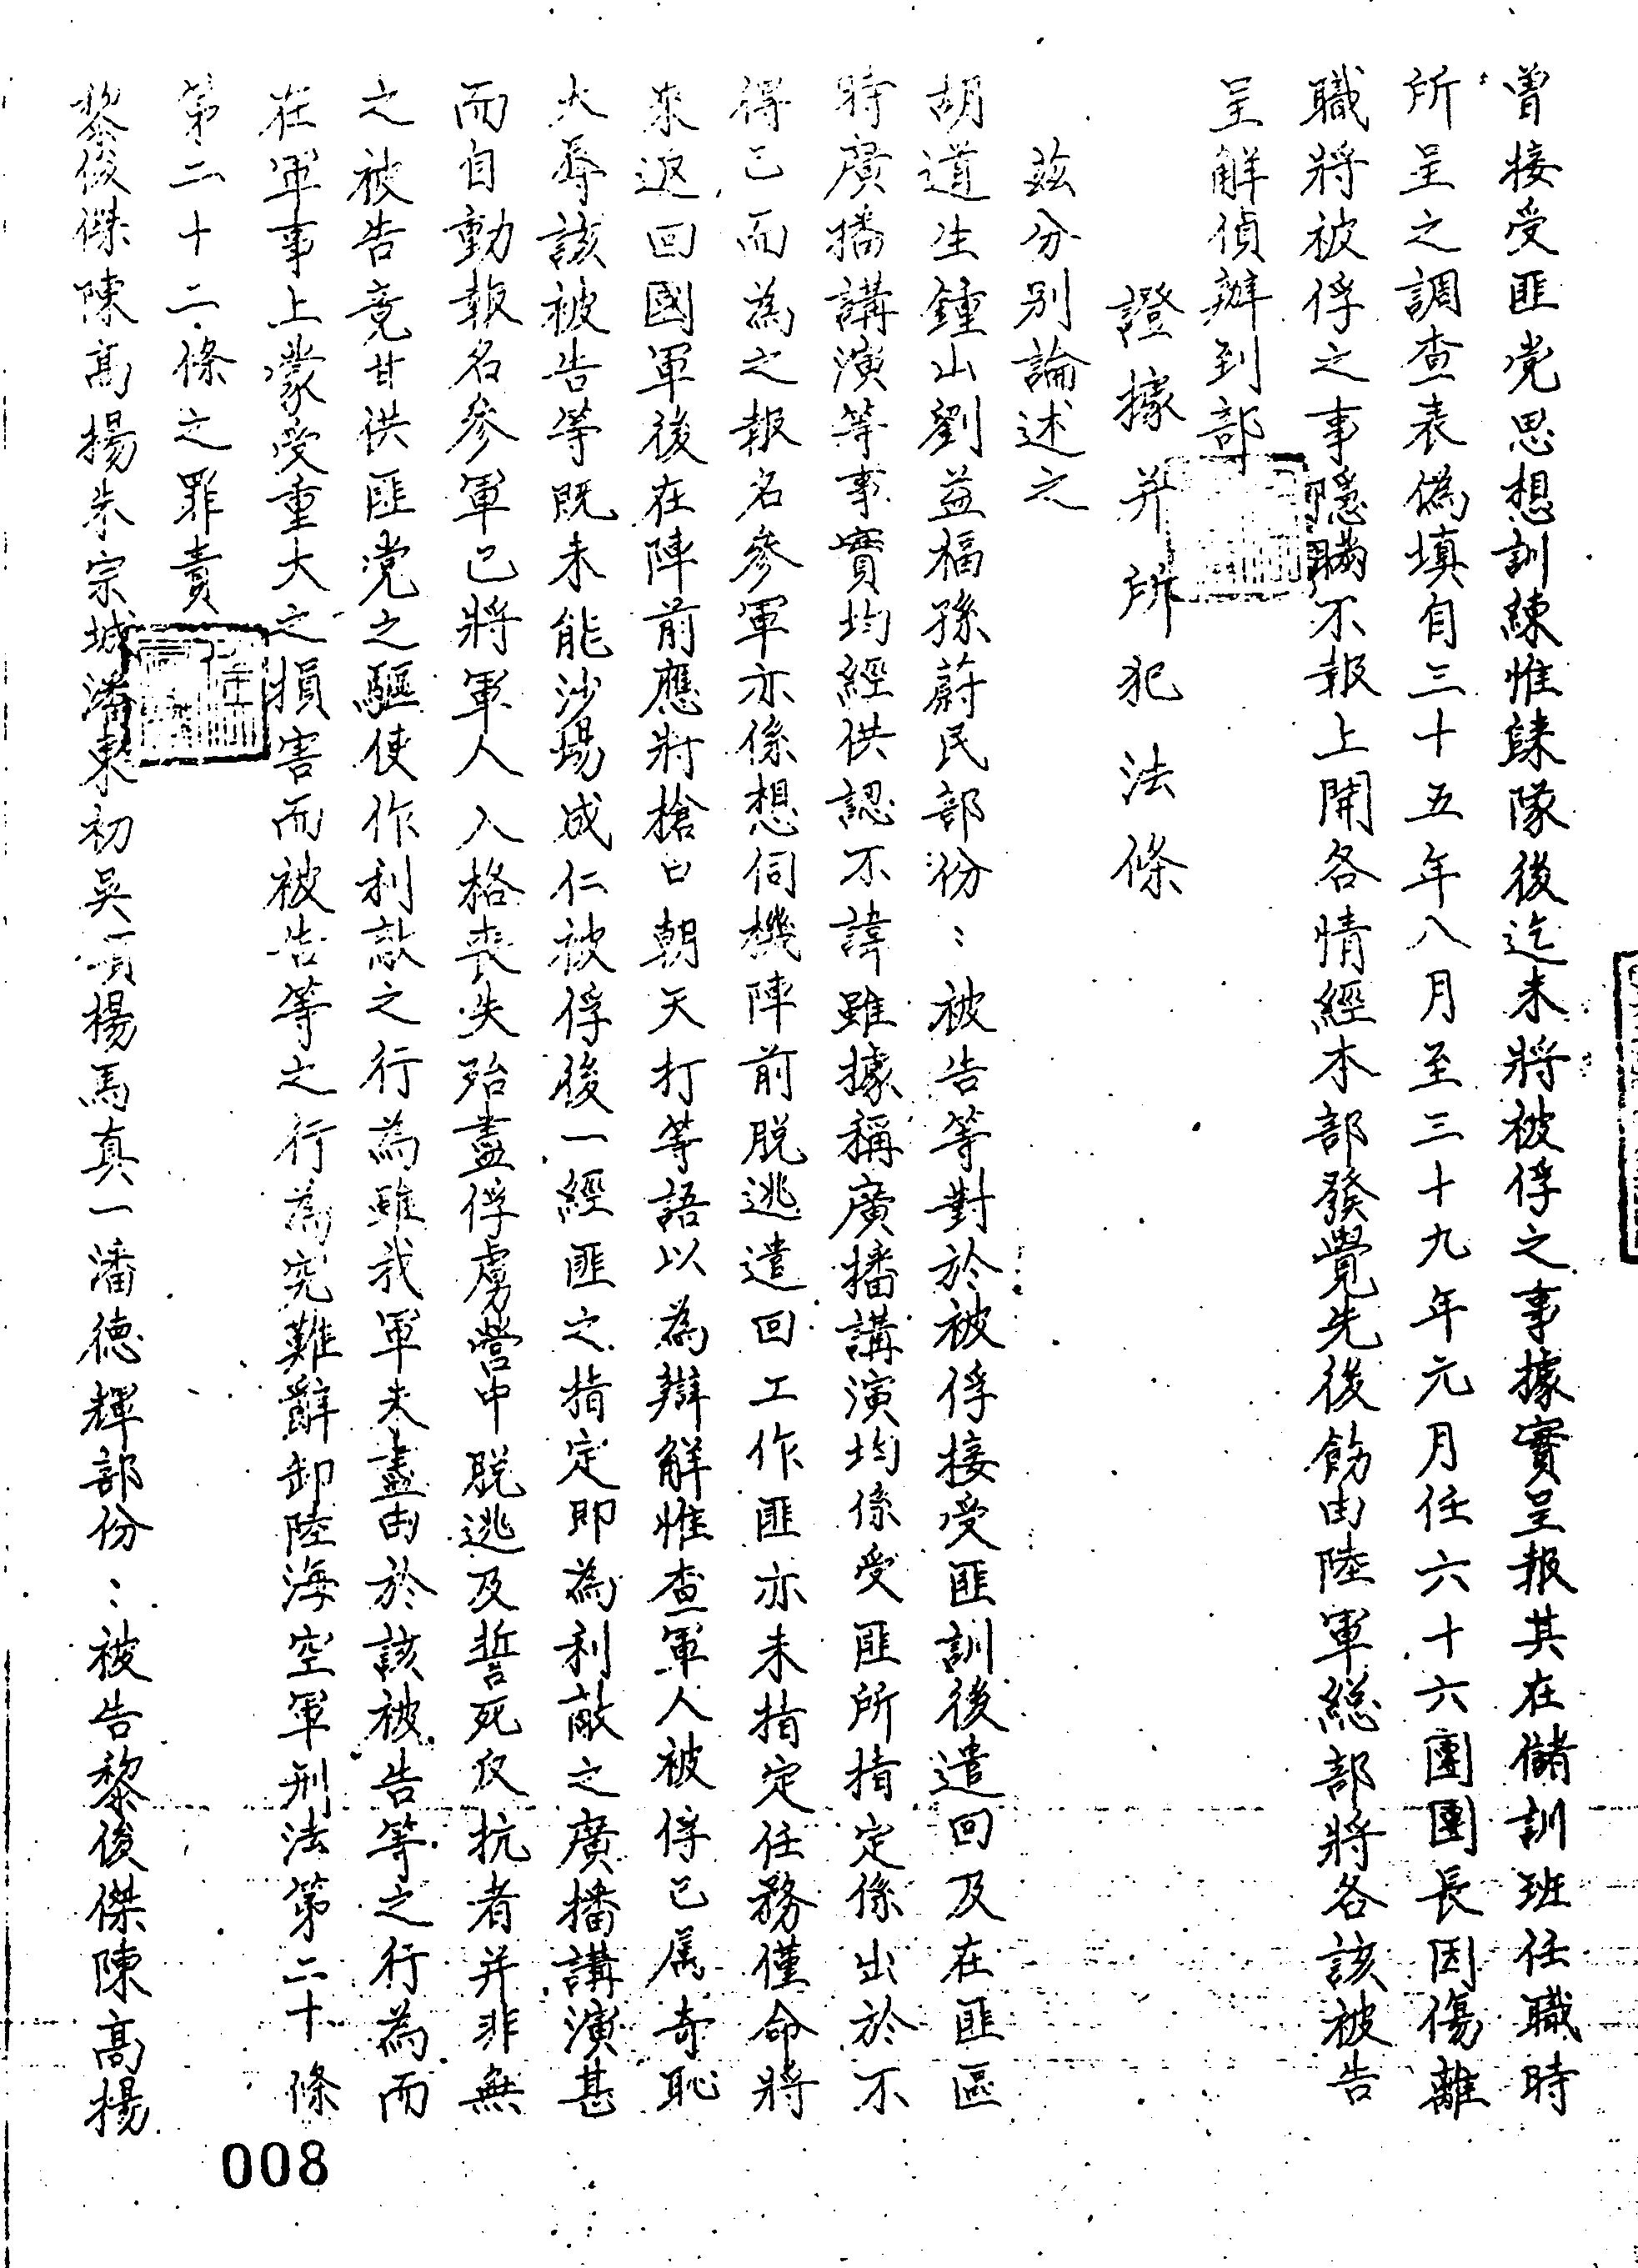 曾接受匪党思想訓練惟諫隊後迄未將被俘之事據實呈報其在儲訓班任職時
所呈之調查表偽填自三十五年八月至三十九年元月任六十六團團長因傷離
職將被俘之事隱瞞不報上開各情經本部發覺先後飭由陸軍総部將各該被告
呈解偵辦到部
證據并所犯法條
茲分別論述之
胡道生鍾山劉益福孫蔚民部份：被告等對於被俘接受匪訓後遣回及在匪區
時廣播講演等事實均經供認不諱雖據稱廣播講演均係受匪所指定係出於不
得已而為之報名參軍亦係想伺機陣前脱逃遣回工作匪亦未指定任務僅命將
來返回國軍後在陣前應將槍口朝天打等語以為辯解惟查軍人被俘已属奇恥
大辱該被告等既未能沙場成仁被俘後一經匪之指定即為利敵之廣播講演甚
而自動報名參軍已將軍人人格喪失殆盡俘虜營中脱逃及誓死反抗者并非無
之被告竟甘供匪党之驅使作利敵之行為雖我軍未盡由於該被告等之行為而
在軍事上蒙受重大之損害而被告等之行為究難辭卸陸海空軍刑法第二十條
第二十二條之罪責
黎俊傑陳高揚朱宗城潘東初吳一項楊馬真一潘德輝部份：被告黎俊傑陳高揚
008